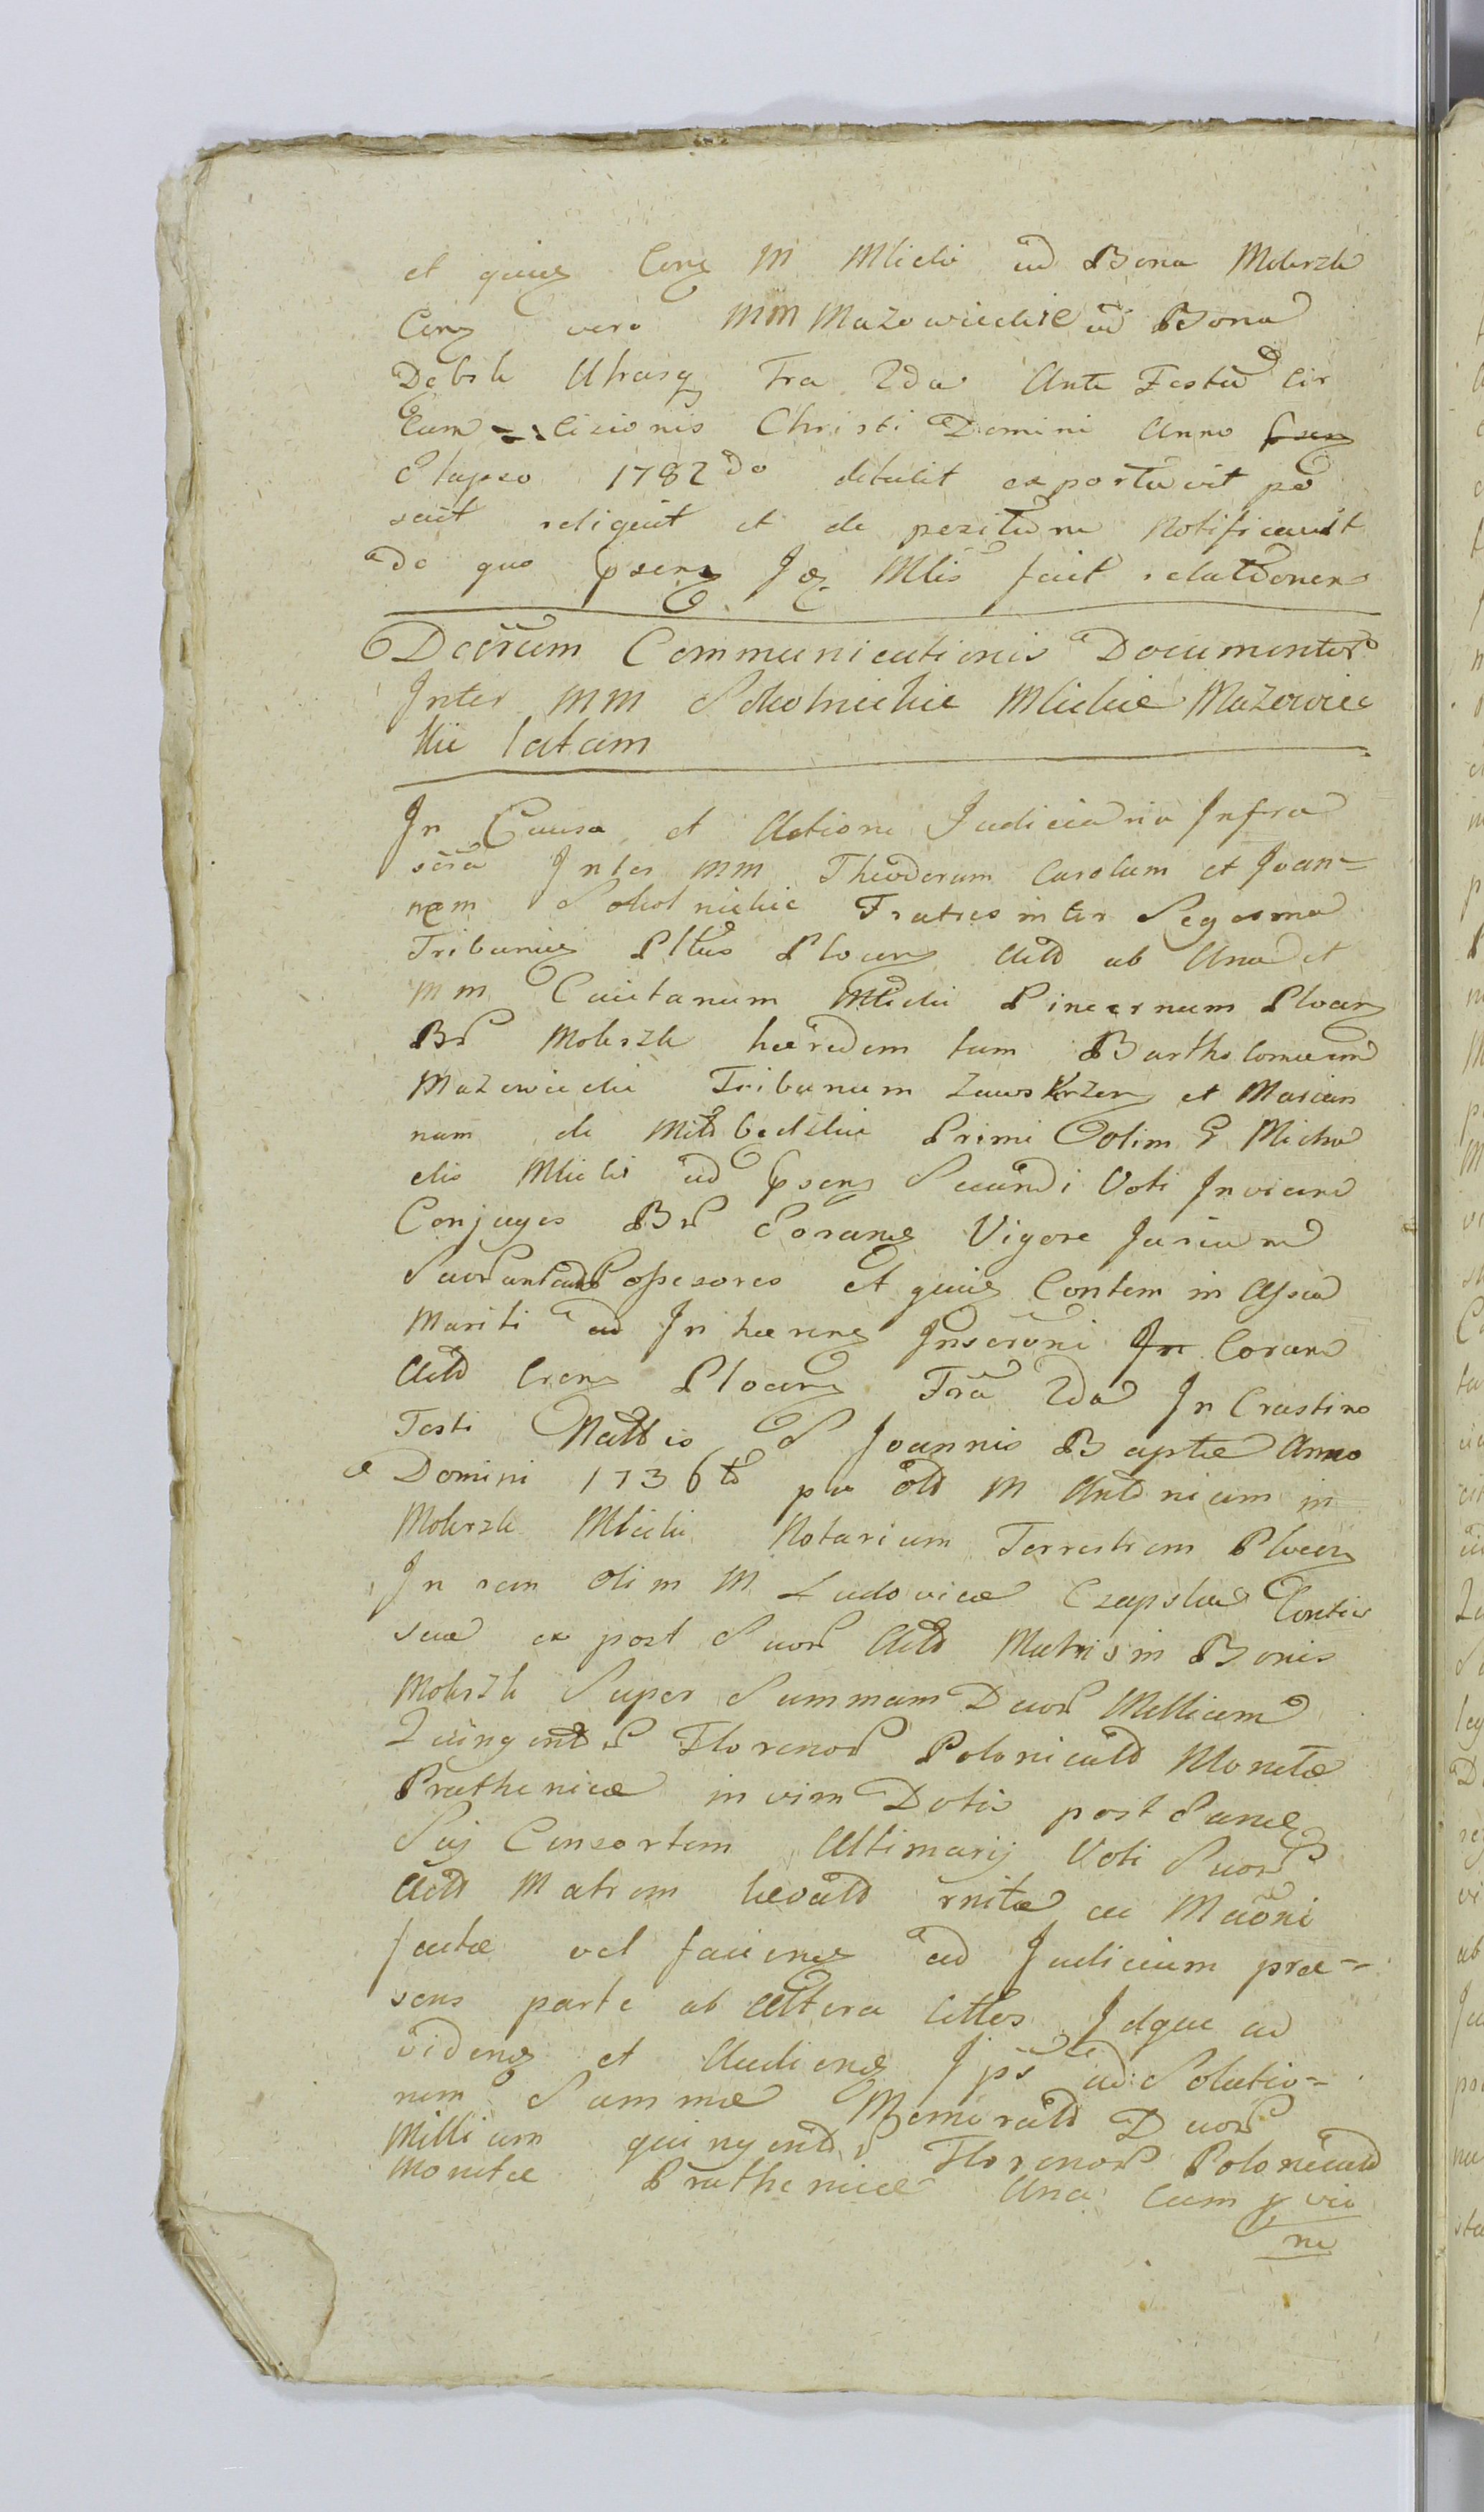 et quidem Cong M Mlicki ad Bona Mokrzk
Cong vero MM Mazowieckie ad Bona
Debsk Utrasq Fra 2da Ante Festu Cir
Cum = Cizionis Christi Domini Anno
Elapso 1782do detulit exportavit po
suit reliquit et de positione Notificavit
de quo psens Jo Mlis fecit relationem
Decrum Communicationis Documentor
Inter MM Sokolnickie Mlickie Mazowiec
kie latam
In Causa et Actione Judiciaria Infra
scra Inter MM Theodorum Carolum et Joan=
nem Sokolnickie Fratres inter Se germa
Tribunig Pltus Plocens Actd ab Una et
MM Caietanum Mlicki Pincernum Plocen
Br Mokrzk hæredem tum Bartholomeum
Mazowiecki Tribunum Zawskrzen et Marian
nam de Nied Bedzkie Primi olim G Micha
elis Mlicki ad psens Secundi Voti Invicem
Conjuges Br Vigore Jurium
Suor Possesores et quidem Contem in Assia
Mariti ad Inhæreng Inscroni Coram
Actd Cren Plocen Fra 2da In Crastino
Festi Nattis S Joannis Baptæ Anno
Domini 1736to per old M Antonium in
Mokrzk Mlicki Notarium Terrestrem Plocen
In rem olim M Ludovicæ Czapska Contis
suæ ex post Suor Actd Matris in Bonis
Mokrzk Super Summam Duor Millium
Quingentd Florenor Polonicald Monetæ
Pruthenicæ in vim Dotis post eande
Suj Consortem Ultimarij Voti Suor
Actd Matrem levatd rnitæ ac Maoni
factæ vel faciend ad Judicium præ=
sens parte ab altera Cittos Idque ad
videndg et Audiendg Ips ad Solutio=
nem Summæ Memoratd Duor
Millium quingentd Florenor Polonicald
Monetæ Pruthenicæ Una Cum pvio
ne